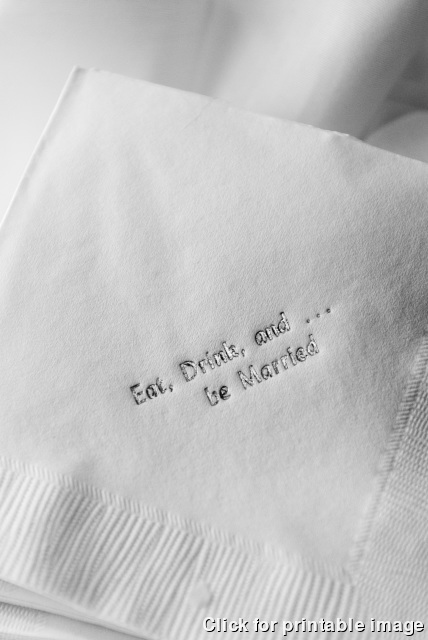 Eat, Drink, and ...
be Married
Click for printable image